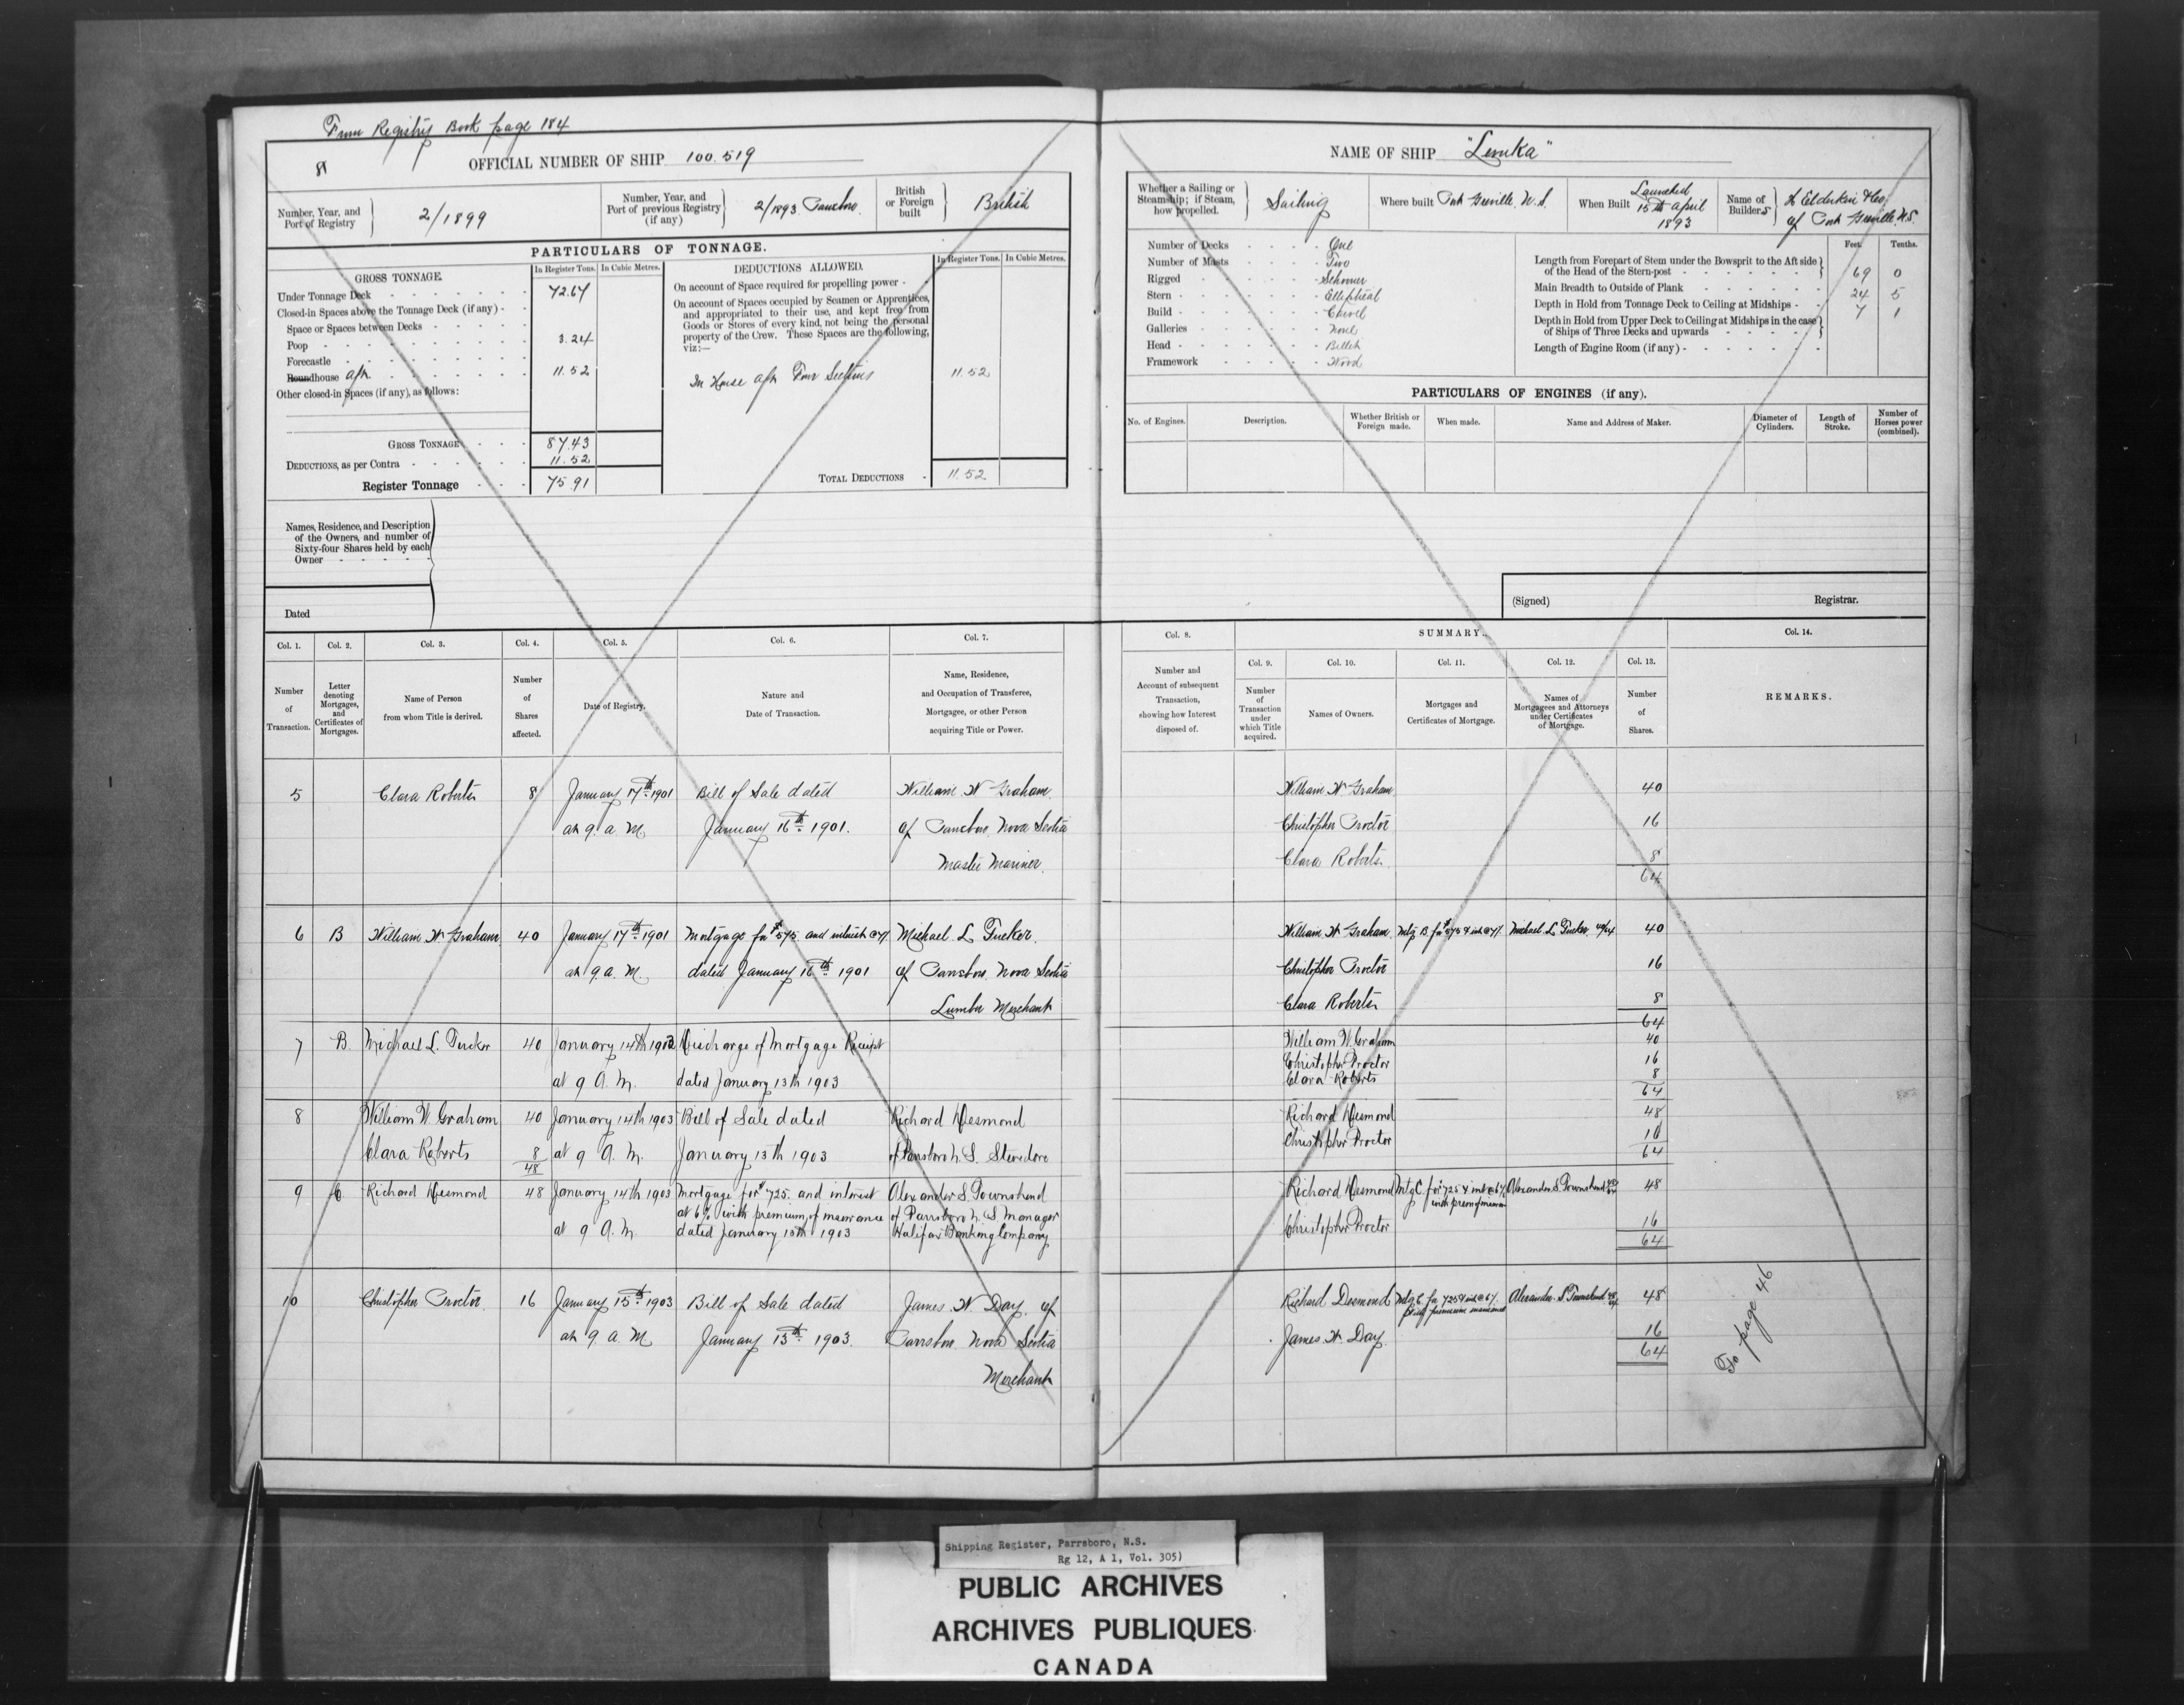 From Registry Book page 184
8
OFFICIAL NUMBER OF SHIP 100.519
Number, Year, and Port of Registry 2/1899
Number, Year, and Port of previous Registry (if any) 2/1893 Parrsboro
British or Foreign built British
PARTICULARS OF TONNAGE.
GROSS TONNAGE.
In Register Tons. In Cubic Metres.
Under Tonnage Deck 72.67
Closed-in Spaces above the Tonnage Deck (if any)
Space or Spaces between Decks
Poop 3.24
Forecastle
Roundhouse aft 11.52
Other closed-in Spaces (if any), as follows:
GROSS TONNAGE 87.43
DEDUCTIONS, as per Contra 11.52
Register Tonnage 75.91
DEDUCTIONS ALLOWED.
In Register Tons. In Cubic Metres.
On account of Space required for propelling power
On account of Spaces occupied by Seamen or Apprentices, and appropriated to their use, and kept free from Goods or Stores of every kind, not being the personal property of the Crew. These Spaces are the following, viz:—
In House aft Four Sections 11.52
TOTAL DEDUCTIONS 11.52
Names, Residence, and Description of the Owners, and number of Sixty-four Shares held by each Owner
Dated
Col. 1. Col. 2. Col. 3. Col. 4. Col. 5. Col. 6. Col. 7.
Number of Transaction.
Letter denoting Mortgages, and Certificates of Mortgages.
Name of Person from whom Title is derived.
Number of Shares affected.
Date of Registry.
Nature and Date of Transaction.
Name, Residence, and Occupation of Transferee, Mortgagee, or other Person acquiring Title or Power.
5 Clara Roberts 8 January 17th 1901 Bill of Sale dated William W Graham
at 9 a M January 16th 1901. of Parrsboro Nova Scotia
Master Mariner.
6 B William W Graham 40 January 17th 1901 Mortgage for $575 and interest @7% Michael L Tucker
at 9 a.M dated January 16th 1901 of Parrsboro Nova Scotia
Lumber Merchant
7 B. Michael L. Tucker 40 January 14th 1903 Discharge of Mortgage Receipt
at 9 A. M. dated January 13th 1903
8 William W Graham 40 January 14th 1903 Bill of Sale dated Richard Desmond
Clara Roberts 8 at 9 A. M. January 13th 1903 of Parrsboro N. S. Stevedore
48
9 C Richard Desmond 48 January 14th 1903 Mortgage for $725. and interest Alexander S. Townshend
at 6% with premium of insurance of Parrsboro N. S Manager
at 9 A. M. dated January 13th 1903 Halifax Banking Company
10 Christopher Proctor 16 January 15th 1903 Bill of Sale dated James W Day of
at 9 a M January 13th 1903. Parrsboro Nova Scotia
Merchant
NAME OF SHIP "Levuka"
Whether a Sailing or Steamship; if Steam, how propelled. Sailing
Where built Port Greville, N.S.
When Built Launched 15th April 1893
Name of Builders H Elderkin & Co. of Port Greville N.S.
Number of Decks One
Number of Masts Two
Rigged Schooner
Stern Elliptical
Build Carvel
Galleries None
Head Billet
Framework Wood
Feet. Tenths.
Length from Forepart of Stem under the Bowsprit to the Aft side of the Head of the Stern-post 69 0
Main Breadth to Outside of Plank 24 5
Depth in Hold from Tonnage Deck to Ceiling at Midships 7 1
Depth in Hold from Upper Deck to Ceiling at Midships in the case of Ships of Three Decks and upwards
Length of Engine Room (if any)
PARTICULARS OF ENGINES (if any).
No. of Engines. Description. Whether British or Foreign made. When made. Name and Address of Maker. Diameter of Cylinders. Length of Stroke. Number of Horses power (combined).
(Signed) Registrar.
Col. 8. SUMMARY. Col. 14.
Col. 9. Col. 10. Col. 11. Col. 12. Col. 13.
Number and Account of subsequent Transaction, showing how Interest disposed of.
Number of Transaction under which Title acquired.
Names of Owners.
Mortgages and Certificates of Mortgage.
Names of Mortgagees and Attorneys under Certificates of Mortgage.
Number of Shares.
REMARKS.
William W Graham 40
Christopher Proctor 16
Clara Roberts. 8
64
William W. Graham Mtg B for $575 & int @7% Michael L Tucker 40/64 40
Christopher Proctor 16
Clara Roberts 8
64
William W. Graham 40
Christopher Proctor 16
Clara Roberts 8
64
Richard Desmond 48
Christopher Proctor 16
64
Richard Desmond Mtg C. for $725 & int @ 6% Alexander S. Townshend 48/64 48
with prem of insurance
Christopher Proctor 16
64
Richard Desmond Mtg C. for 725 & int @ 6% Alexander S Townshend 48/64 48
premium insurance
James W. Day 16
64
To page 46
Shipping Register, Parrsboro, N.S.
Rg 12, A 1, Vol. 305)
PUBLIC ARCHIVES
ARCHIVES PUBLIQUES
CANADA